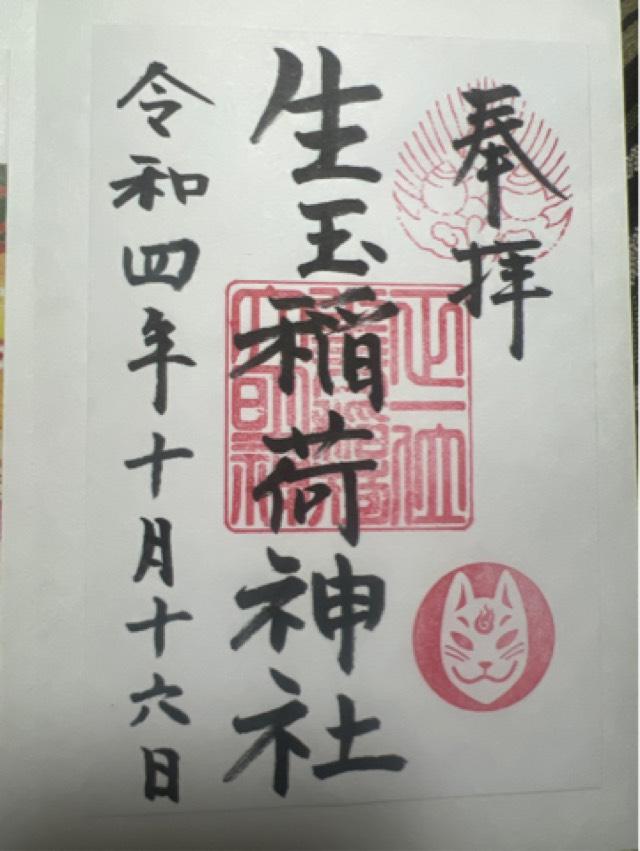 奉拝
生玉稲荷神社
令和四年十月十六日
正一位